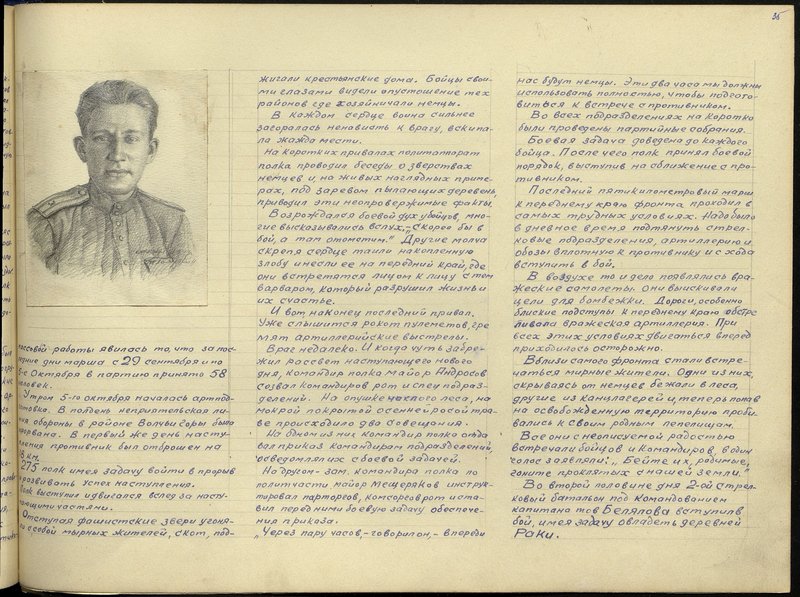 35
массовой работы явилась то, что за пос-
ледние дни марша с 29 сентября и по
5-е Октября в партию принять 58
человек.
Утром 5-го октября началась артпод-
готовка. В полдень неприятельская ли-
ния обороны в районе Волчьи Горы была
прорвана. В первый же день насту-
пления противник был отброшен на
18 км.
275 полк имея задачу войти в прорыв
и развивать успех наступления.
Полк выступил и двигался вслед за насту-
пающими частями.
Отступая фашистские звери угоня-
ли с собой мырных жителей, скот, под-
жигали крестьянские дома. Бойцы свои-
ми глазами видели опустошение тех
районов где хозяйничали немцы.
В каждом сердце воина сильнее
загоралась ненависть к врагу, вскипа-
ла жажда мести.
На коротких привалах политаппарат
полка проводил беседы о зверствах
немцев и, на живых наглядных приме-
рах, под заревом пылающих деревень,
приводил эти неопровержимые факты.
Возрождался боевой дух у бойцов, мно-
гие высказывались вслух, „скорее бы в
бой, а там отомстим." Другие молча
скрепя сердце таили накопленную
злобу и несли ее на передний край, где
они встретятся лицом к лицу с тем
варваром, который разрушил жизнь и
их счастье.
И вот наконец последний привал.
Уже слышится рокот пулеметов, гре
мят артиллерийские выстрелы.
Враг недалеко. И когда чуть забре-
жил рассвет наступающего нового
дня, командир полка майор Андросов
созвал командиров рот и спец подраз-
делений. На опушке леса, на
мокрой покрытой осенней росой тра-
ве происходило два совещания.
На одном из них командир полка отда
вал приказ командирам подразделений,
осведомляя их с боевой задачей.
На другом- зам. командира полка по
политчасти майор Мещеряков инструк-
тировал парторгов, комсоргов рот и ста-
вил перед ними боевую задачу обеспече-
ния приказа.
„Через пару часов,- говорил он,- впереди
нас будут немцы. Эти два часа мы должны
использовать полностью, чтобы подгото-
виться к встрече с противником.
Во всех подразделениях на коротко
были проведены партийные собрания.
Боевая задача доведена до каждого
бойца. После чего полк принял боевой
порядок, выступив на сближение с про-
тивником.
Последний пятикилометровый марш
к переднему краю фронта проходил в
самых трудных условиях. Надо было
в дневное время подтянуть стрел-
ковые подразделения, артиллерию и
обозы вплотную к противнику и с хода
вступить в бой.
В воздухе то и дело появлялись вра-
жеские самолеты. Они выискивали
цели для бомбежки. Дороги, особенно
блиские подступы к переднему краю обстре
ливала вражеская артиллерия. При
всех этих условиях двигаться вперед
приходилось осторожно.
Вблизи самого фронта стали встре-
чаться мирные жители. Одни из них,
скрываясь от немцев бежали в леса,
другие из канцлагерей и, теперь попав
на освобожденную территорию проби-
вались к своим родным пепелищам.
Все они с неописуемой радостью
встречали бойцов и командиров, в один
голос заявляли: „Бейте их, родимые,
гоните проклятых с нашей земли."
Во второй половине дня 2-ой стрел-
ковый батальон под командованием
капитана тов Беляпова вступил в
бой, имея задачу овладеть деревней
Раки.